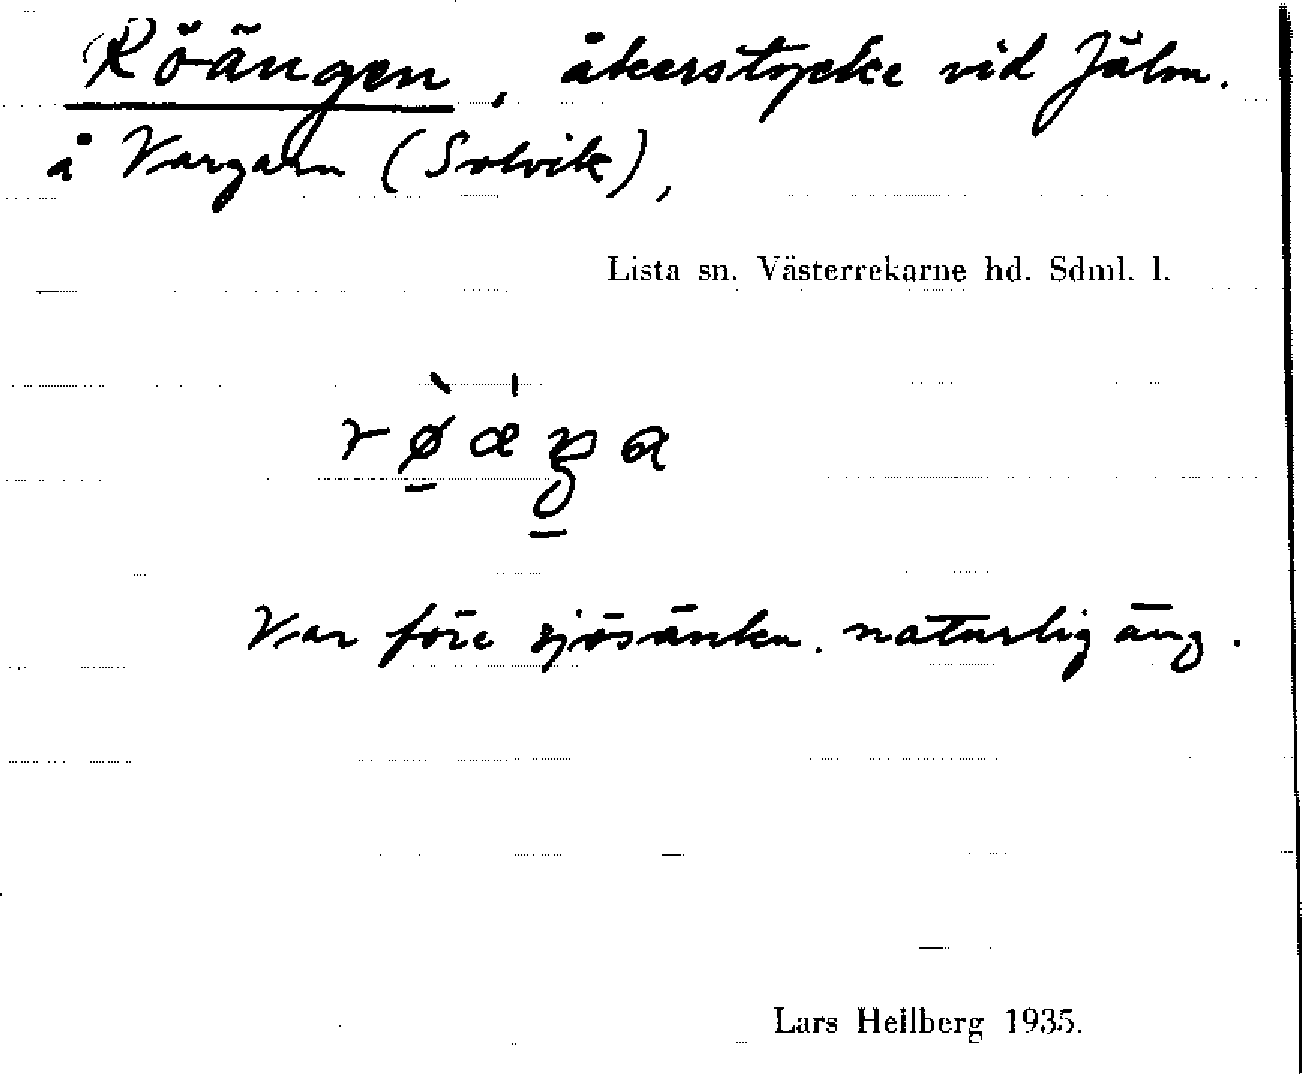 Röängen, åkerstycke vid Hjälm.
å Vargarn (Solvik),
Lista sn. Västerrekarne hd. Sdml. l.
Var före sjösänkn. naturlig äng.
Lars Hellberg 1935.